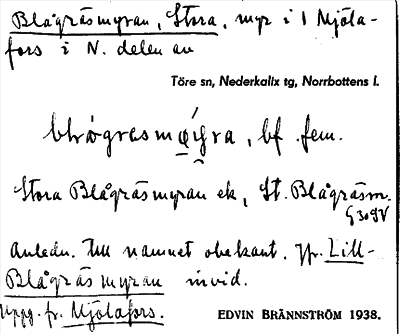 Blågräsmyran, Stora, myr i 1 Mjöla-
fors i N. delen av
Töre sn, Nederkalix tg, Norrbottens l.
bf. fem.
Stora Blågräsmyran ek, St. Blågräsm.
G 30 SV
Anledn. till namnet obekant. Jfr. Lill-
Blågräsmyran invid.
Uppg. fr. Mjölafors.
EDVIN BRÄNNSTRÖM 1938.